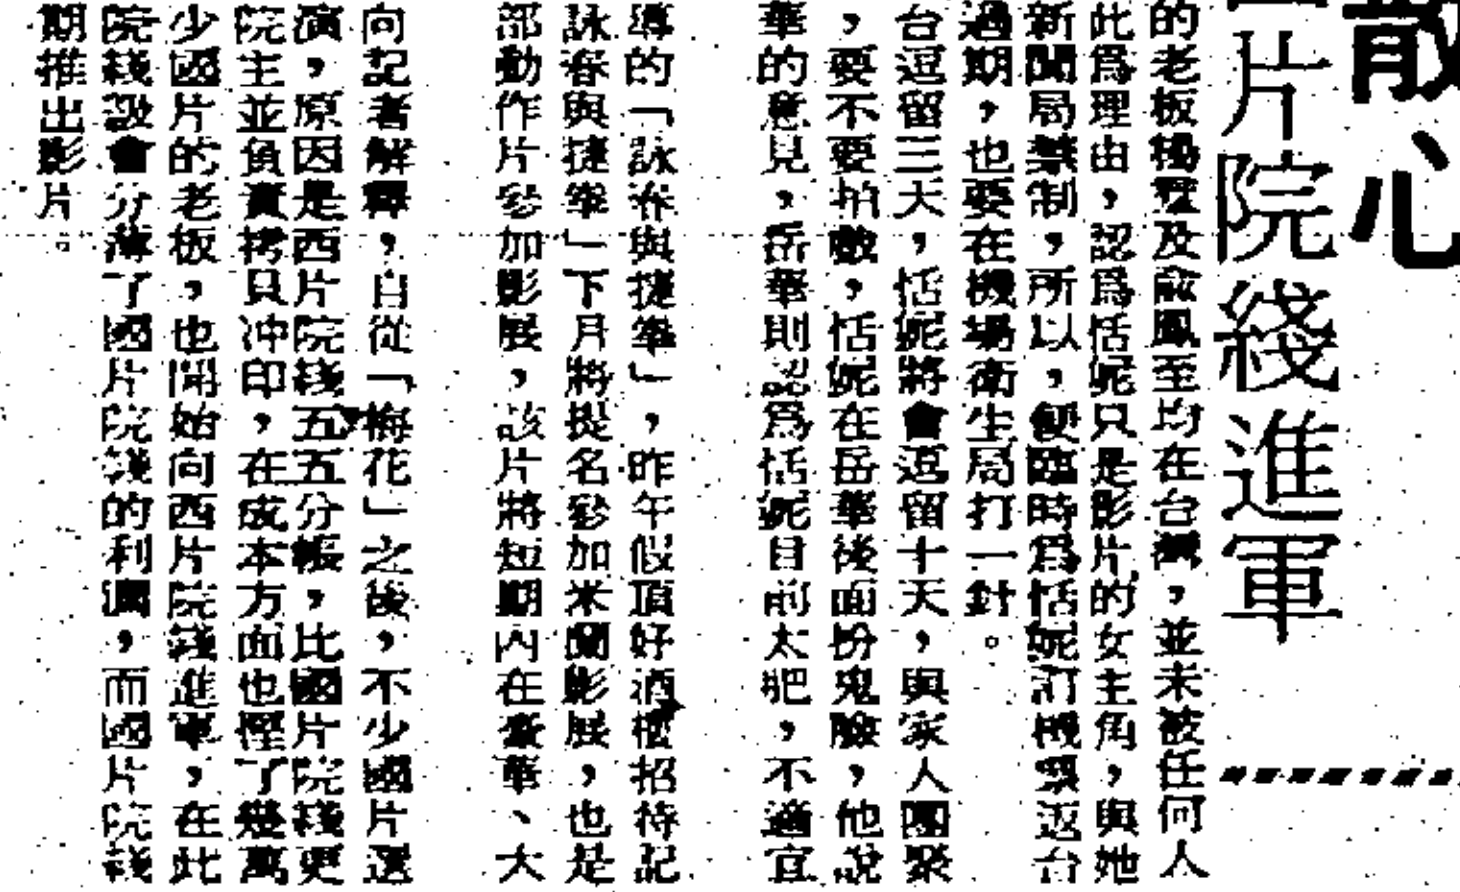 散心
片院綫進軍
的老板楊⁠及兪鳳至均在台灣，並未被任何人
此爲理由，認爲恬妮只是影片的女主角，與她
新聞局禁制，所以，便臨時爲恬妮訂機票返台
過期，也要在機場衛生局打一針。
台逗留三天，恬妮將會逗留十天，與家人團聚
，要不要拍戲，恬妮在岳華後面扮鬼臉，他說
華的意見，岳華則認爲恬妮目前太肥，不適宜
導的「詠春與捷拳」，昨午假頂好酒樓招待記
詠春與捷拳」下月將提名參加米蘭影展，也是
部動作片參加影展，該片將短期內在豪華、大
向記者解釋，自從「梅花」之後，不少國片選
演，原因是西片院綫五五分帳，比國片院綫更
院主並負責拷貝冲印，在成本方面也慳了幾萬
少國片的老板，也開始向西片院綫進軍，在此
院綫設會分薄了國片院綫的利潤，而國片院綫
期推出影片。